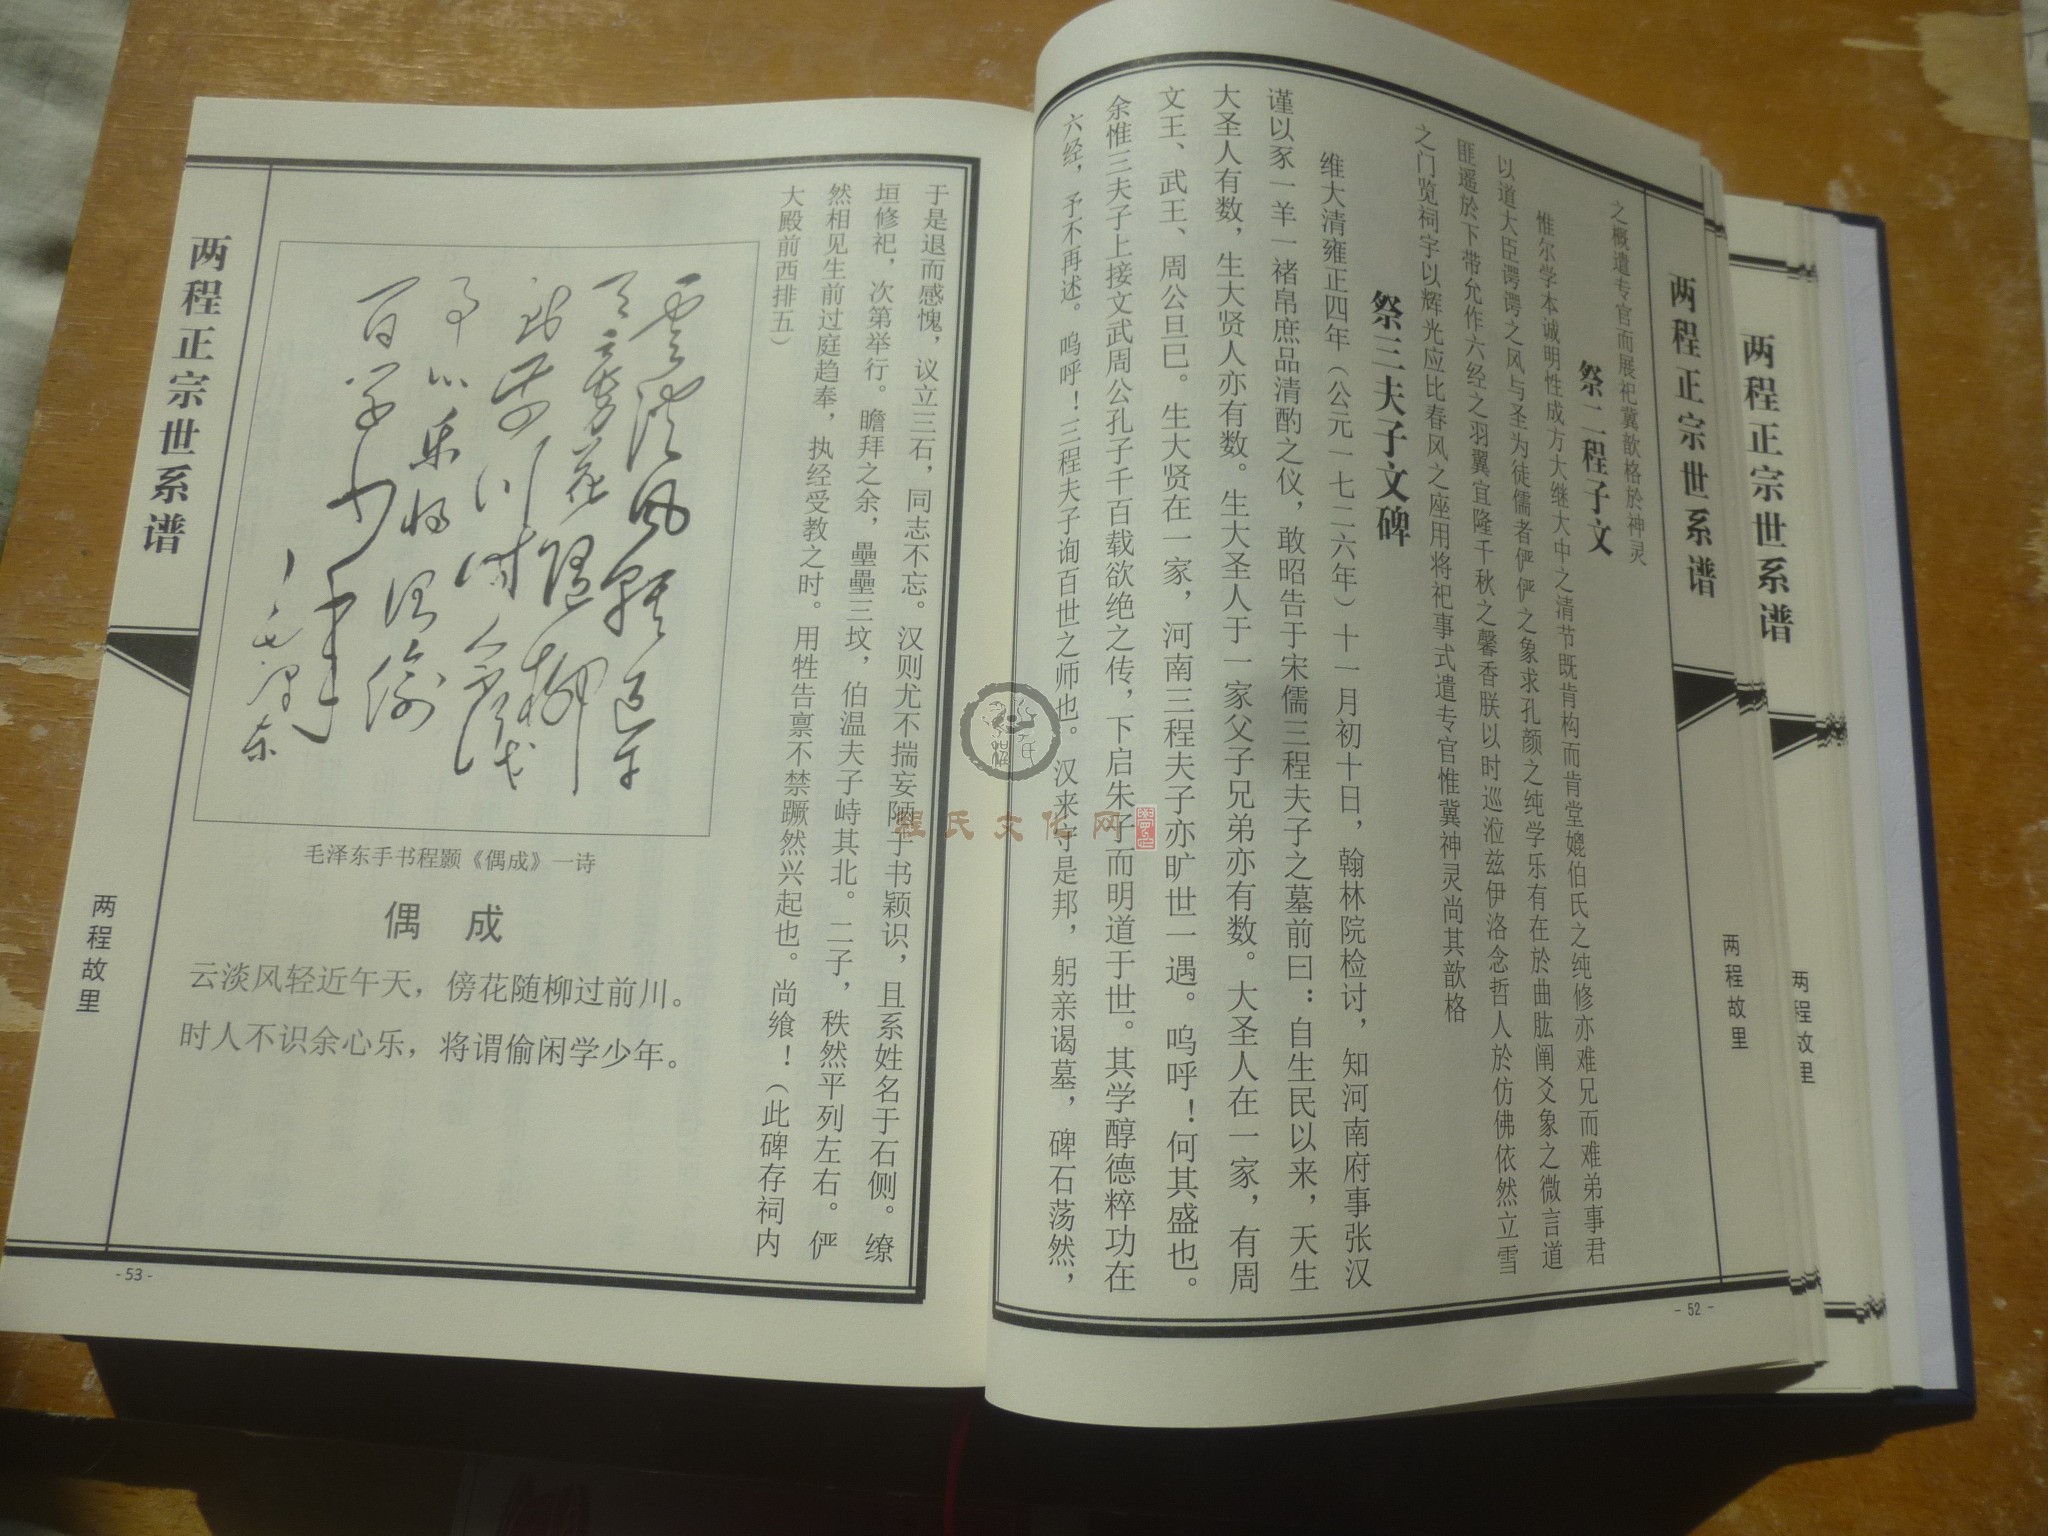 两程正宗世系谱
两程故里
两程正宗世系谱
两程故里
- 52 -
之概遣专官而展祀冀歆格於神灵
祭二程子文
惟尔学本诚明性成方大继大中之清节既肯构而肯堂媲伯氏之纯修亦难兄而难弟事君
以道大臣谔谔之风与圣为徒儒者俨俨之象求孔颜之纯学乐有在於曲肱阐爻象之微言道
匪遥於下带允作六经之羽翼宜隆千秋之馨香朕以时巡涖兹伊洛念哲人於仿佛依然立雪
之门览祠宇以辉光应比春风之座用将祀事式遣专官惟冀神灵尚其歆格
祭三夫子文碑
维大清雍正四年（公元一七二六年）十一月初十日，翰林院检讨，知河南府事张汉
谨以豕一羊一褚帛庶品清酌之仪，敢昭告于宋儒三程夫子之墓前曰：自生民以来，天生
大圣人有数，生大贤人亦有数。生大圣人于一家父子兄弟亦有数。大圣人在一家，有周
文王、武王、周公旦巳。生大贤在一家，河南三程夫子亦旷世一遇。呜呼！何其盛也。
余惟三夫子上接文武周公孔子千百载欲绝之传，下启朱子而明道于世。其学醇德粹功在
六经，予不再述。呜呼！三程夫子询百世之师也。汉来守是邦，躬亲谒墓，碑石荡然，
于是退而感愧，议立三石，同志不忘。汉则尤不揣妄陋手书颖识，且系姓名于石侧。缭
垣修祀，次第举行。瞻拜之余，壘壘三坟，伯温夫子峙其北。二子，秩然平列左右。俨
然相见生前过庭趋奉，执经受教之时。用牲告禀不禁蹶然兴起也。尚飨！（此碑存祠内
大殿前西排五）
云淡风轻近午
天 傍花随柳
过前川 时人不识
余心乐 将谓偷
闲学少年
毛泽东
毛泽东手书程颢《偶成》一诗
偶 成
云淡风轻近午天，傍花随柳过前川。
时人不识余心乐，将谓偷闲学少年。
两程正宗世系谱
两程故里
- 53 -
程氏文化网